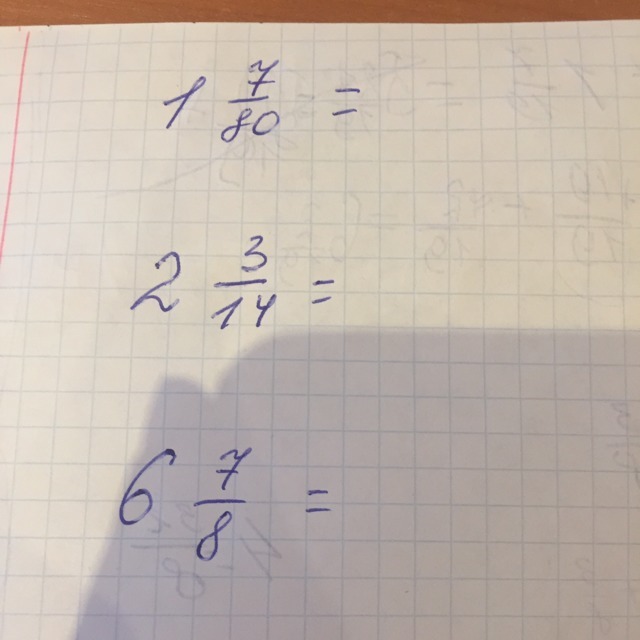 1 7/80 =
2 3/14 =
6 7/8 =